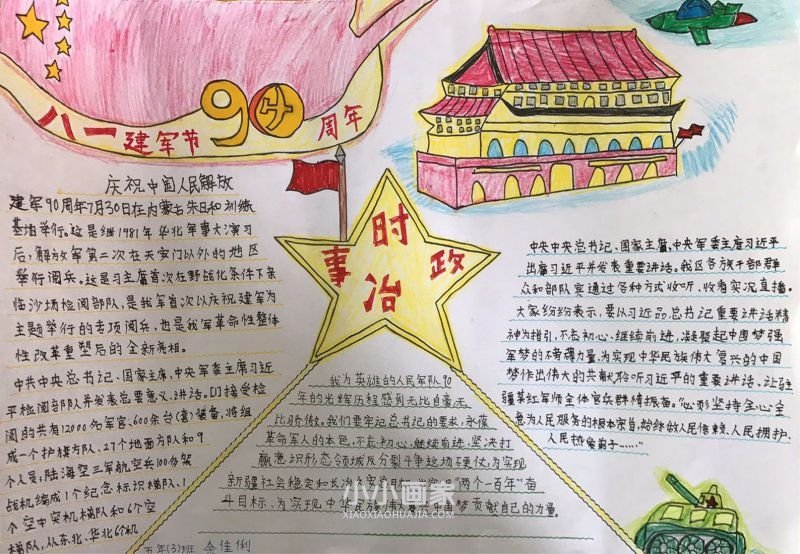 八一建军节90周年
庆祝中国人民解放
建军90周年7月30日在内蒙古朱日和训练
基地举行。这是继1981年华北军事大演习
后、解放军第二次在天安门以外的地区
举行阅兵。这是习主席首次在野战化条件下亲
临沙场检阅部队,是我军首次以庆祝建军为
主题举行的专项阅兵,也是我军革命性整体
性改革重塑后的全新亮相。
中共中央总书记、国家主席,中央军委主席习近
平检阅部队并发表重要讲话。接受检
阅的共有12000名军官、600余台(套)装备,将组
成一个护旗方队、27个地面方队和9
个人员;陆海空三军航空兵100多架
战机编成1个纪念标识梯队、1
个空中突机梯队和6个空
梯队,从东北、华北6个机
时
事
政
治
我为英雄的人民军队90
年的光辉历程感到无比自豪无
比骄傲。我们要牢记总书记的要求,永葆
革命军人的本色,不忘初心,继续前进,坚决打
赢意识形态领域反分裂斗争这场硬仗,为实现
新疆社会稳定和长治久安总目标,实现"两个一百年"奋
斗目标、为实现中华民族伟大复兴中国梦贡献自己的力量。
中央中央总书记、国家主席,中央军委主席习近平
出席习近平并发表重要讲话。我区各族干部群
众和部队官兵通过各种方式收听、收看实况直播。
大家纷纷表示,要从习近平总书记重要讲话精
神为指引,不忘初心、继续前进,凝聚起中国梦强
军梦的不磅礴力量,为实现中华民族伟大复兴的中国
梦作出伟大的共献。聆听习近平的重要讲话、让驻
疆某红军师全体官兵群情振奋。"必彩坚持全心全
意为人民服务的根本宗旨,始终做人民信赖、人民拥护、
人民热爱前子……"
小小画家
XIAOXIAOHUAJIA.COM
五年(3)班 余佳俐